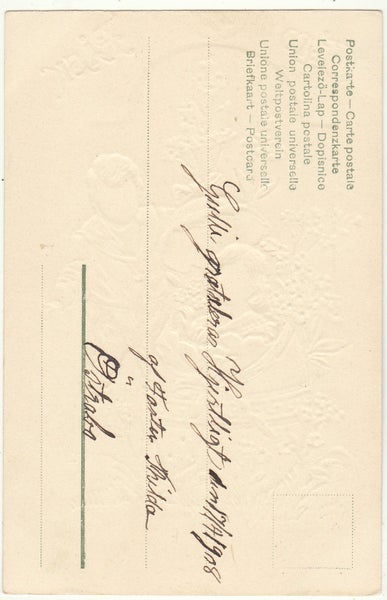 Postkarte — Carte postale
Correspondenzkarte
Levelező-Lap — Dopisnice
Cartolina postale
Union postale universelle
Weltpostverein
Unione postale universelle
Briefkaart — Postcard
Gulli gratuleras Hjertligt den 17/4 1908
af Tanten Hilda
i
Östrabo